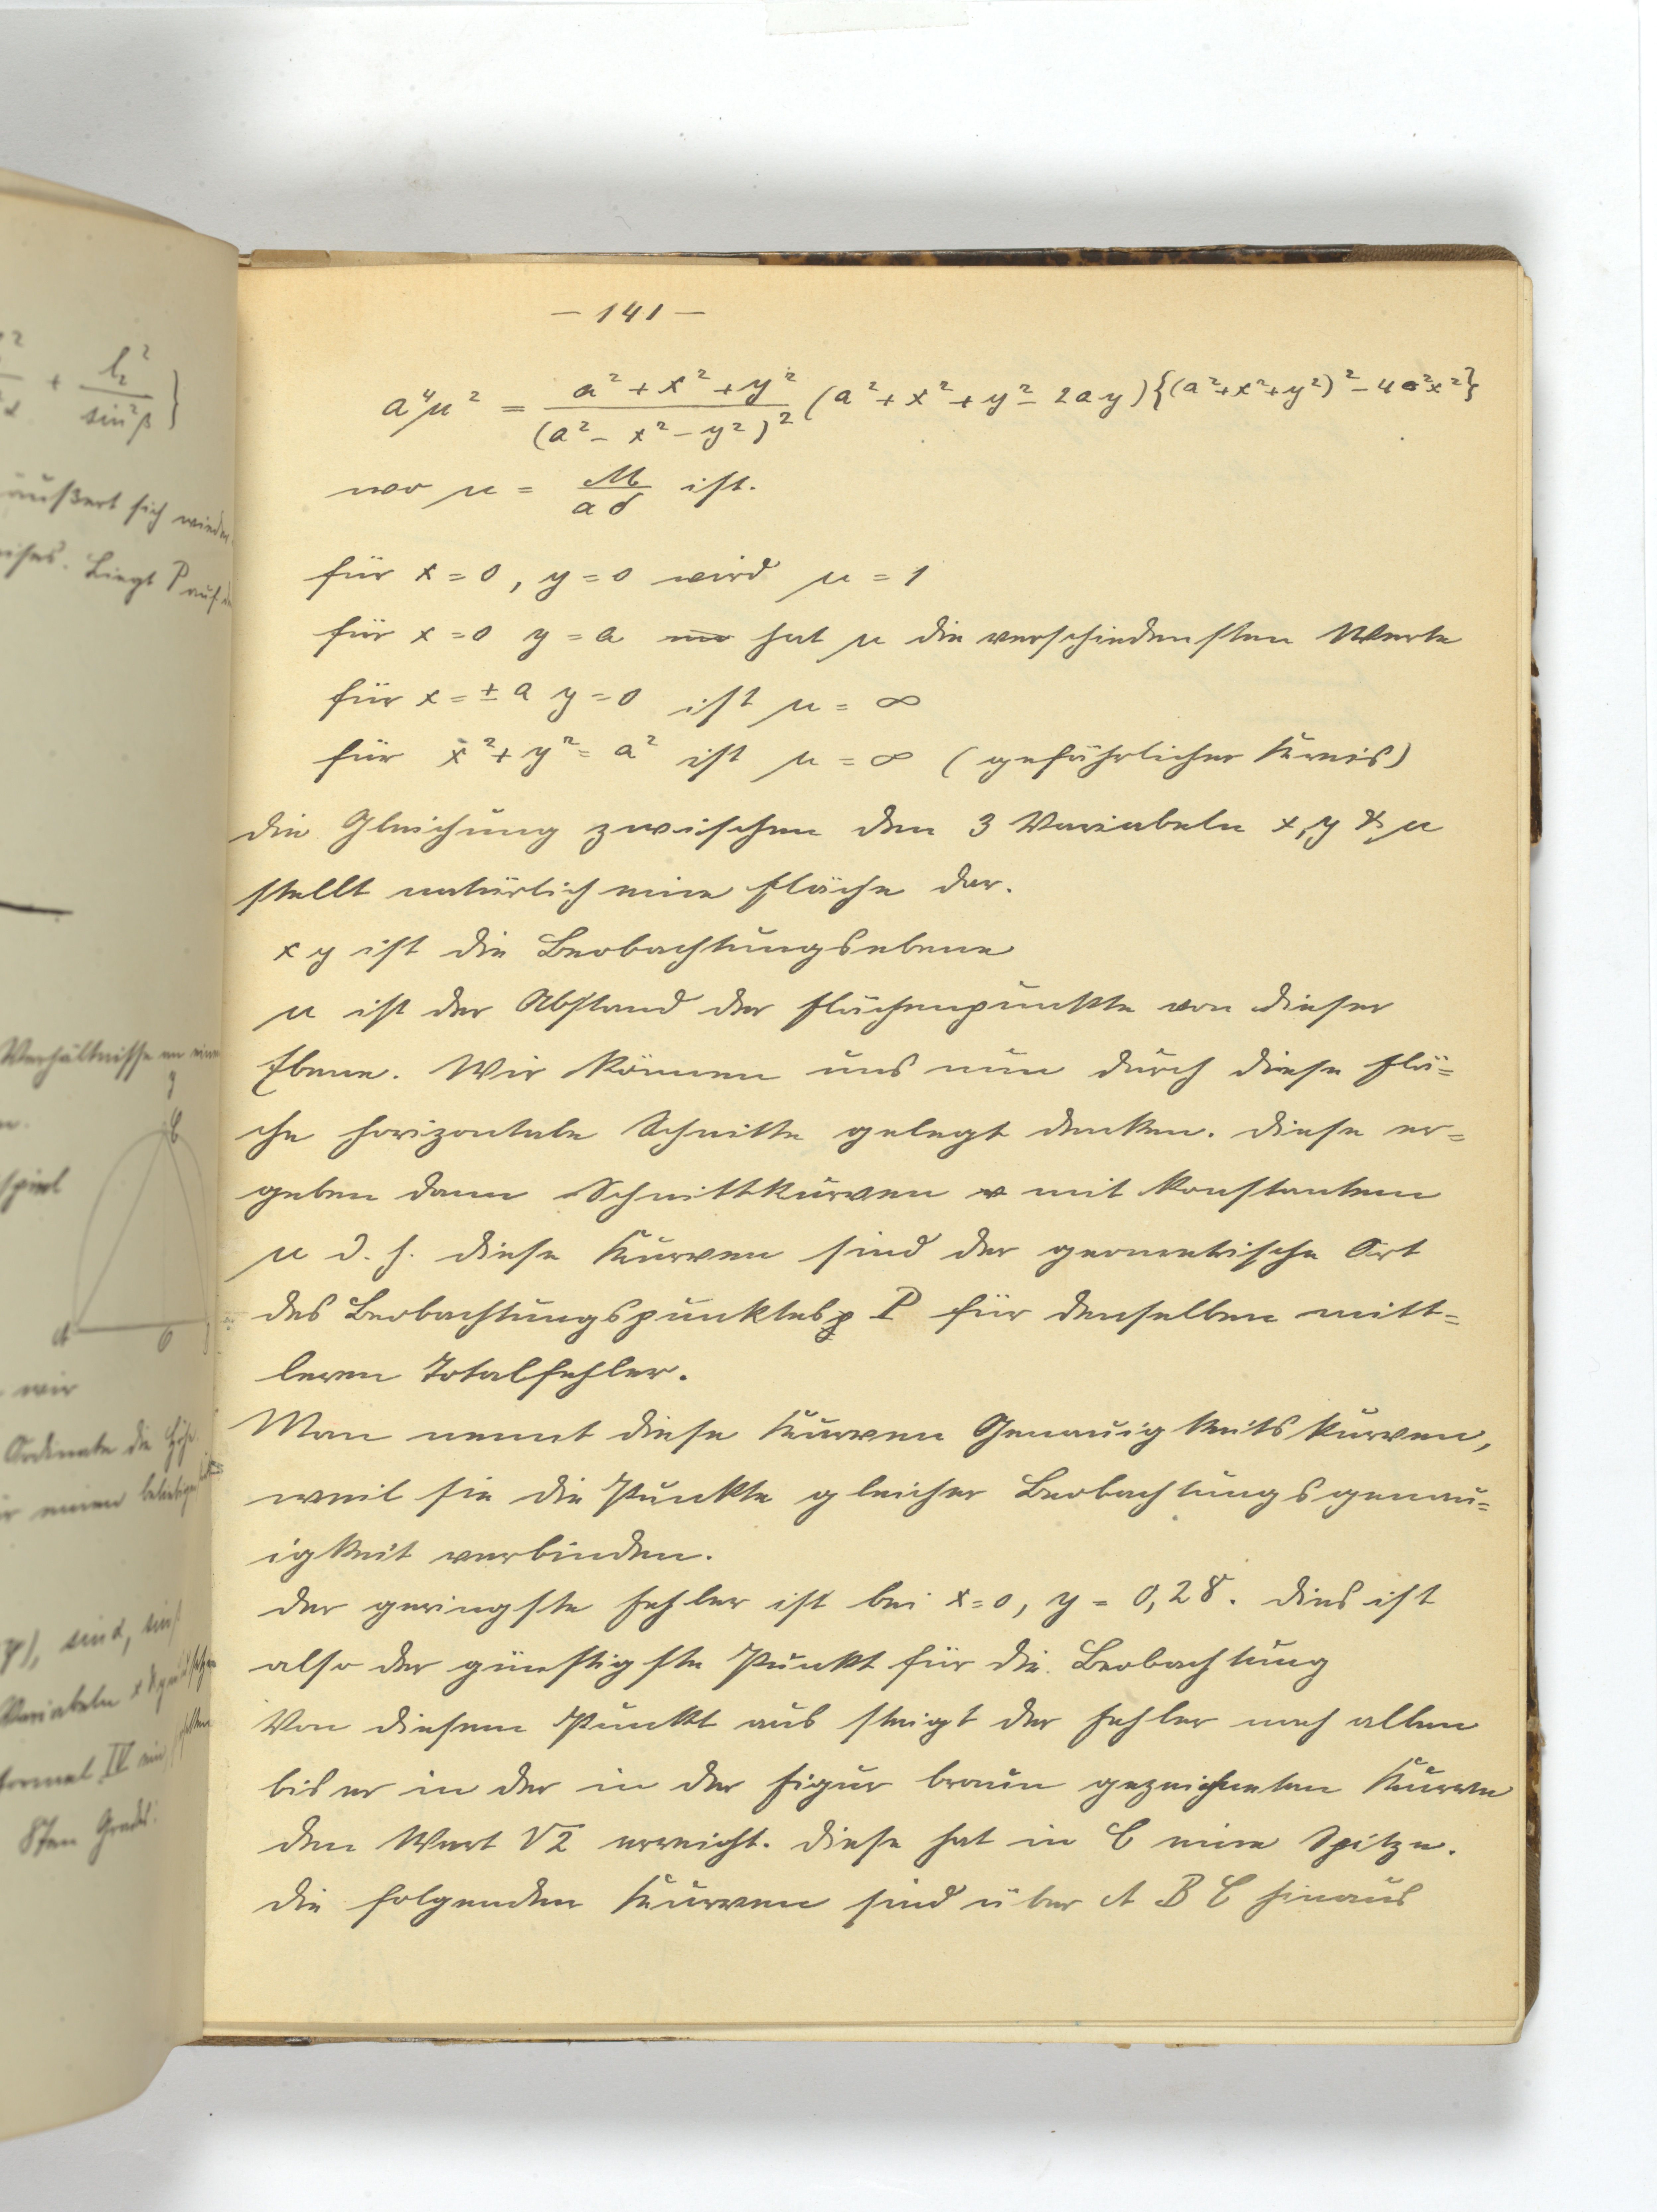 — 141 —
a⁴μ² = (a² + x² + y²)/(a² – x² – y²)² (a² + x² + y² – 2ay){(a²+x²+y²)² – 4a²x²}
wo μ = M/aδ ist.
für x = 0, y = 0 wird μ = 1
für x = 0 y = a hat μ die verschiedensten Werte
für x = ± a y = 0 ist μ = ∞
für x² + y² = a² ist μ = ∞ (gefährlicher Kreis)
die Gleichung zwischen den 3 Variabeln x, y & μ
stellt natürlich eine Fläche dar.
x y ist die Beobachtungsebene
μ ist der Abstand der Flächenpunkte von dieser
Ebene. Wir können uns nun durch diese Flä=
che horizontale Schnitte gelegt denken. Diese er=
geben dann Schnittkurven mit konstantem
μ d. h. diese Kurven sind der geometrische Ort
des Beobachtungspunktes P für denselben mitt=
leren Totalfehler.
Man nennt diese Kurven Genauigkeitskurven,
weil sie die Punkte gleicher Beobachtungsgenau=
igkeit verbinden.
Der geringste Fehler ist bei x = 0, y = 0,28. Dies ist
also der günstigste Punkt für die Beobachtung
Von diesem Punkt aus steigt der Fehler nach allen
bis er in der in der Figur braun gezeichneten Kurve
den Wert √2 erreicht. Diese hat in C eine Spitze.
Die folgenden Kurven sind über A B C hinaus
l₂²
sin²β
äußert sich wieder
Liegt P auf
Verhältnisse an einem
C
A
wir
Ordinate die Höhe
einen beliebigen
sin α, sin β
Variabeln x & y
Formel IV ein
8ten Grades: